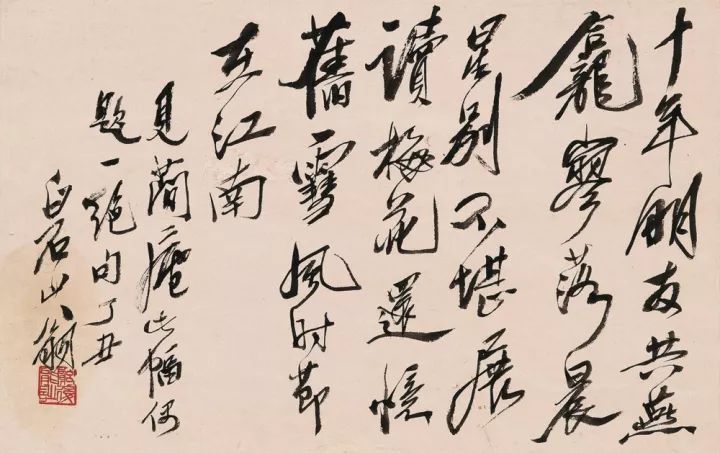 十年朋友共燕
龕寥落晨
星别不堪展
讀梅花還憶
舊雪風时節
在江南
見蕳庵此幅偶
題一絶句丁丑
白石山翁